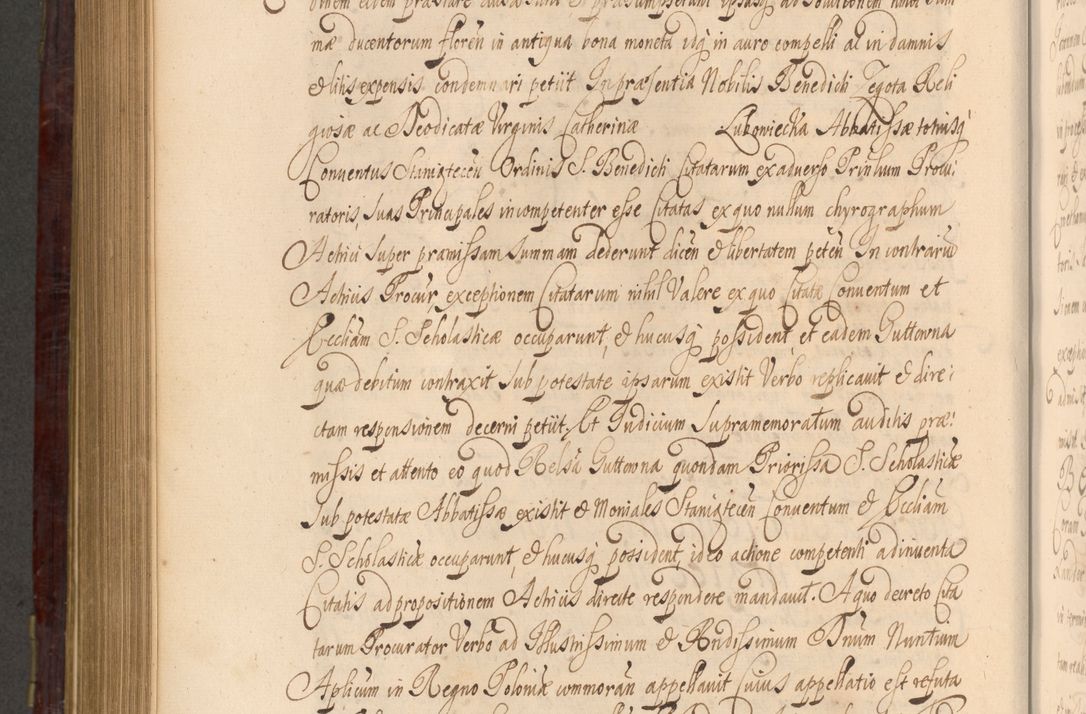 mæ ducentorum floren in antiqua bona moneta idq in auro compelli al in damnis
& litis expensis condemnari petiit In præsentia Nobilis Benedicti Zegota Reli
giosæ ac Deodicatæ Virginis Catherinæ Lubowiecka Abbatissæ totiusq
Conventus Staniątecen Ordinis S. Benedicti Citatarum ex adverso Prinlium Procu:
ratoris, suas Principales incompetenter esse Citatas, ex quo nullum chyrographum
Actrici super præmissam summam dederunt dicen & libertatem peten In contrariu
Actricis Procur, exceptionem Citatarum nihil Valere ex quo Citatæ Conventum et
Eccliam S. Scholasticæ occuparunt, & hucusq possident, et eadem Guttowna
quæ debitum contraxit sub potestate ipsarum existit Verbo replicavit & dire:
ctam responsionem decerni petiit. Et Iudicium supramemoratum auditis præ:
missis et attento eo quod Relsa Guttowna quondam Priorissa S. Scholasticæ
sub potestatæ Abbatissæ existit & Moniales Staniątecen Conventum & Eccliam
S. Scholasticæ occuparunt, & hucusq possident, ideo actione competenti adinventa
Citatis ad propositionem Actricis directe respondere mandavit. A quo decreto Cita
tarum Procurator Verbo ad Illustrissimum & Rndissimum Dnum Nuntium
Aplicum in Regno Poloniæ commoran appellavit Cuius appellatio est refuta